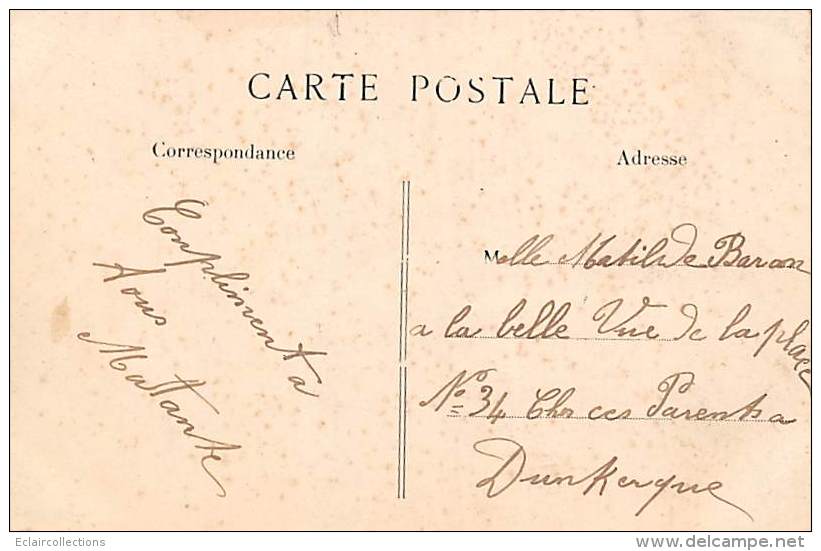 CARTE POSTALE
Correspondance
Adresse
Compliment a
tous
Mattante
Melle Matilde Baron
a la belle Vue de la place
No 34 Chos ces Parents a
Dunkerque
Eclaircollections
delcampe.net